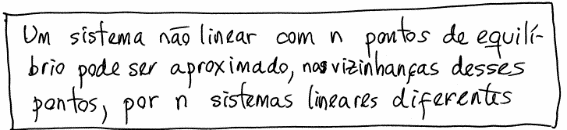 Um sistema não linear com n pontos de equilí-
brio pode ser aproximado, nas vizinhanças desses
pontos, por n sistemas lineares diferentes